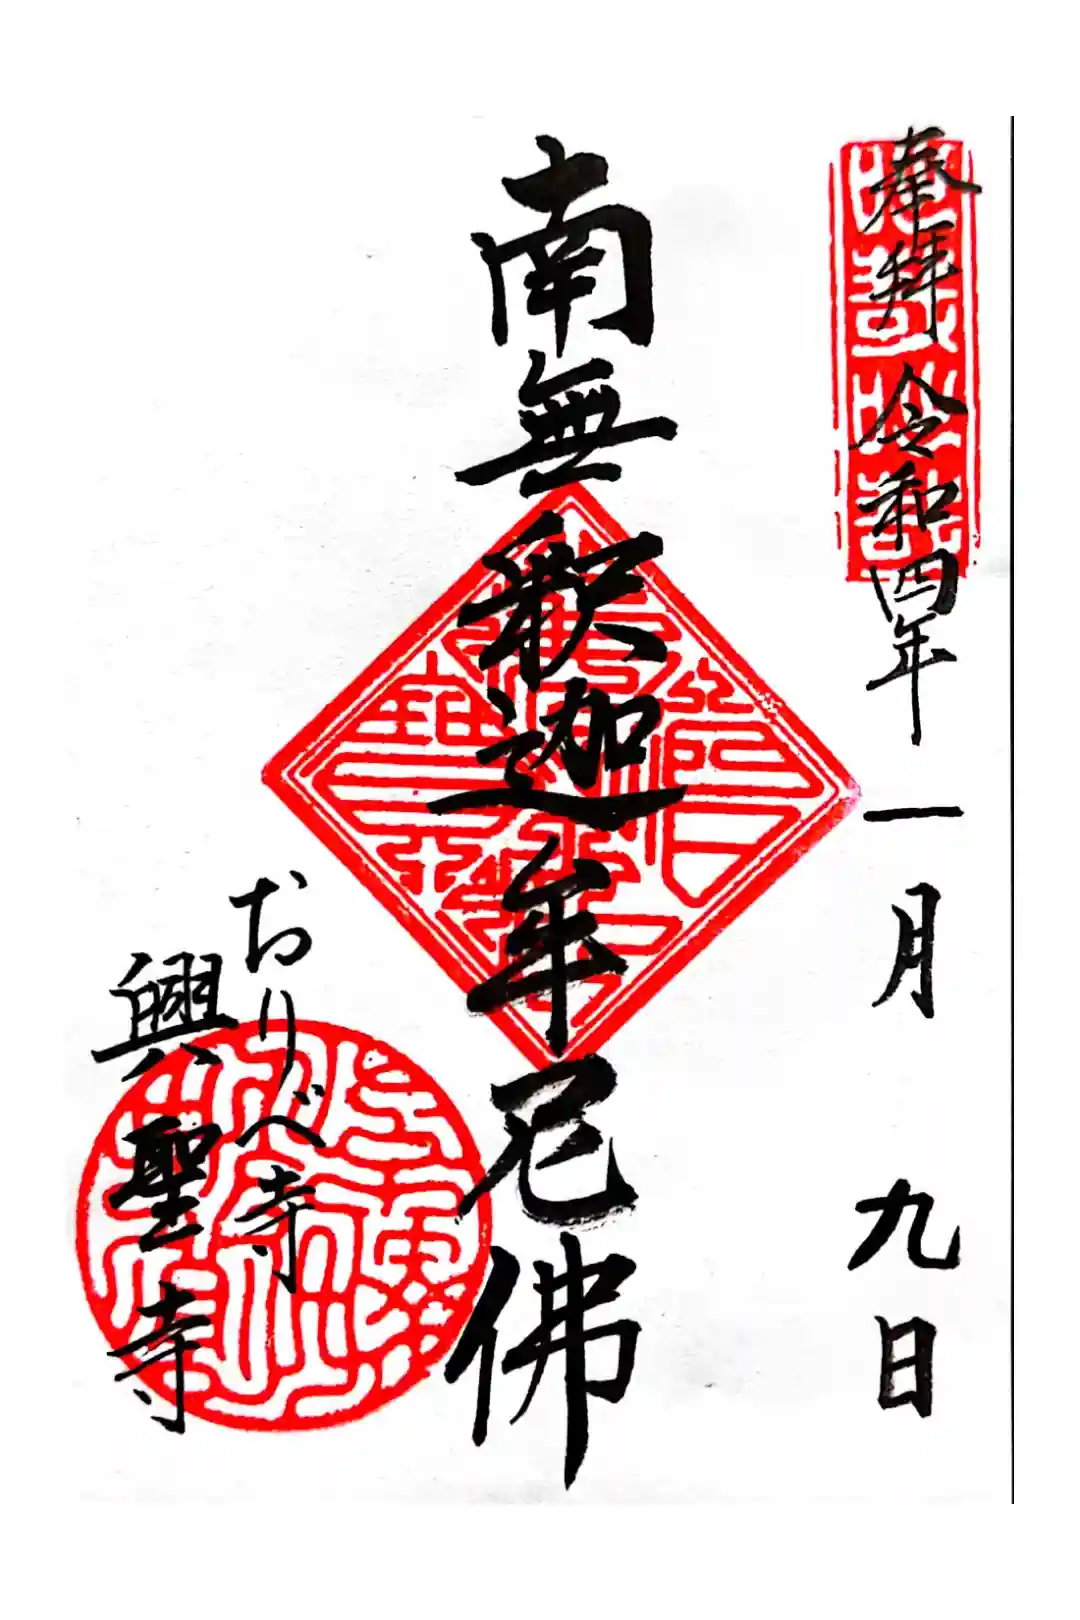 奉拝 令和四年一月九日
南無釈迦牟尼佛
おりべ寺
興聖寺